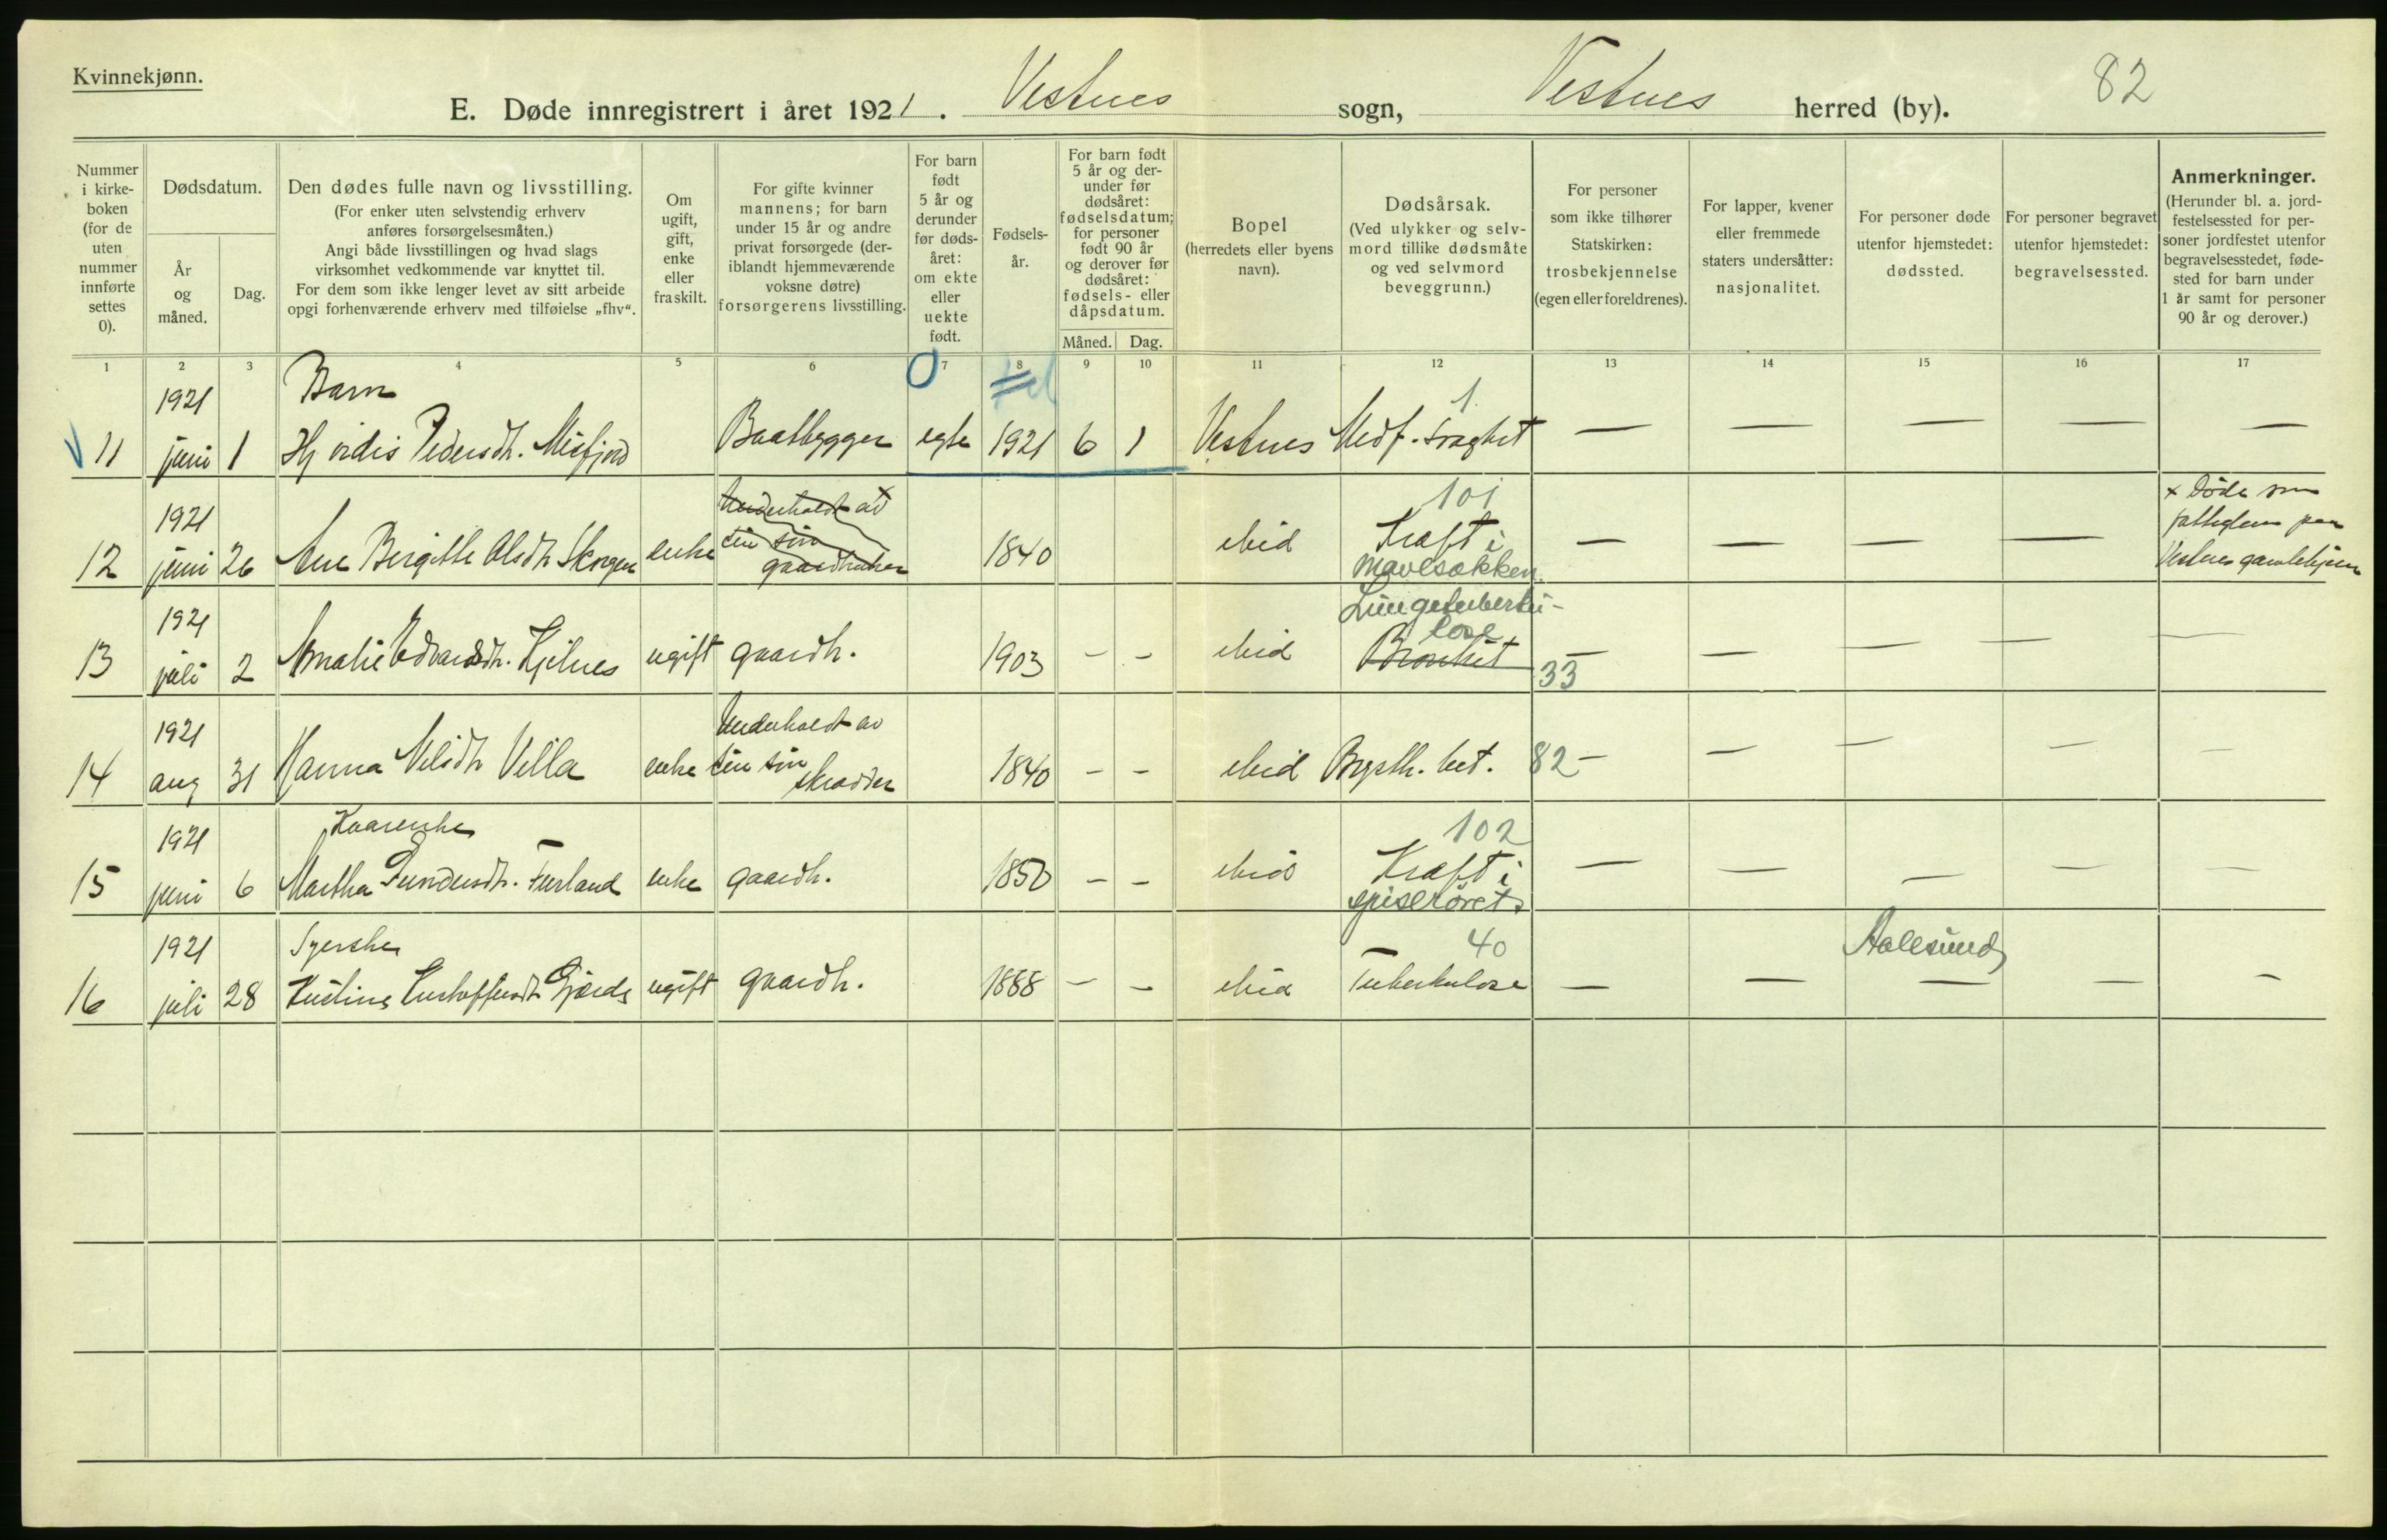 Kvinnekjønn.
82
E. Døde innregistrert i året 1921. Vestnes sogn, Vestnes herred (by).
Nummer i kirke-boken (for de uten nummer innførte settes 0).
Dødsdatum.
År og måned.
Dag.
Den dødes fulle navn og livsstilling.
(For enker uten selvstendig erhverv anføres forsørgelsesmåten.)
Angi både livsstillingen og hvad slags virksomhet vedkommende var knyttet til.
For dem som ikke lenger levet av sitt arbeide opgi forhenværende erhverv med tilføielse „fhv“.
Om ugift, gift, enke eller fraskilt.
For gifte kvinner mannens; for barn under 15 år og andre privat forsørgede (der-iblandt hjemmeværende voksne døtre) forsørgerens livsstilling.
For barn født 5 år og derunder før døds-året: om ekte eller uekte født.
Fødsels-år.
For barn født 5 år og der-under før dødsåret: fødselsdatum; for personer født 90 år og derover før dødsåret: fødsels- eller dåpsdatum.
Måned.
Dag.
Bopel
(herredets eller byens navn).
Dødsårsak.
(Ved ulykker og selv-mord tillike dødsmåte og ved selvmord beveggrunn.)
For personer som ikke tilhører Statskirken: trosbekjennelse (egen eller foreldrenes).
For lapper, kvener eller fremmede staters undersåtter: nasjonalitet.
For personer døde utenfor hjemstedet: dødssted.
For personer begravet utenfor hjemstedet: begravelsessted.
Anmerkninger.
(Herunder bl. a. jord-festelsessted for per-soner jordfestet utenfor begravelsesstedet, føde-sted for barn under 1 år samt for personer 90 år og derover.)
1 2 3 4 5 6 7 8 9 10 11 12 13 14 15 16 17
1921 Barn 0 1
11 juni 1 Hjördis Pedersdt. Misfjord Baatbygger egte 1921 6 1 Vestnes Medf. svaghet — — — — —
1921 Underholdt av 101 x Döde som
12 juni 26 Ane Bergitte Olsdt Skorgen enke sin sön gaardbruker 1840 ibid Kræft i mavesækken — — — — fattiglem paa Vestnes gamlehjem
1921 Lungetuberku-lose
13 juli 2 Amalie Edvardsdt. Kjelnes ugift gaardbr. 1903 - - ibid Bronkit 33 — — — — —
1921 Underholdt av
14 aug 31 Hanna Nilsdt Villa enke sin sön skrædder 1840 - - ibid Brysth. bet. 82 — — — — —
1921 Kaarenke 102
15 juni 6 Martha Gundersdt. Furland enke gaardbr. 1850 - - ibid Kræft i spiserøret — — — — —
1921 Syerske 40 Aalesund
16 juli 28 Kristine Kristoffersdt Gjærde ugift gaardbr. 1888 - - ibid Tuberkulose — — — — —